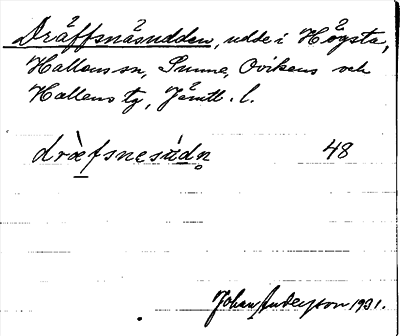 Dräffsnäsudden, udde i Högsta,
Hallens sn, Sunne, Ovikens och
Hallens tg, Jämtl. l.
dräfsnesùdn 48
Johan Andersson 1931.